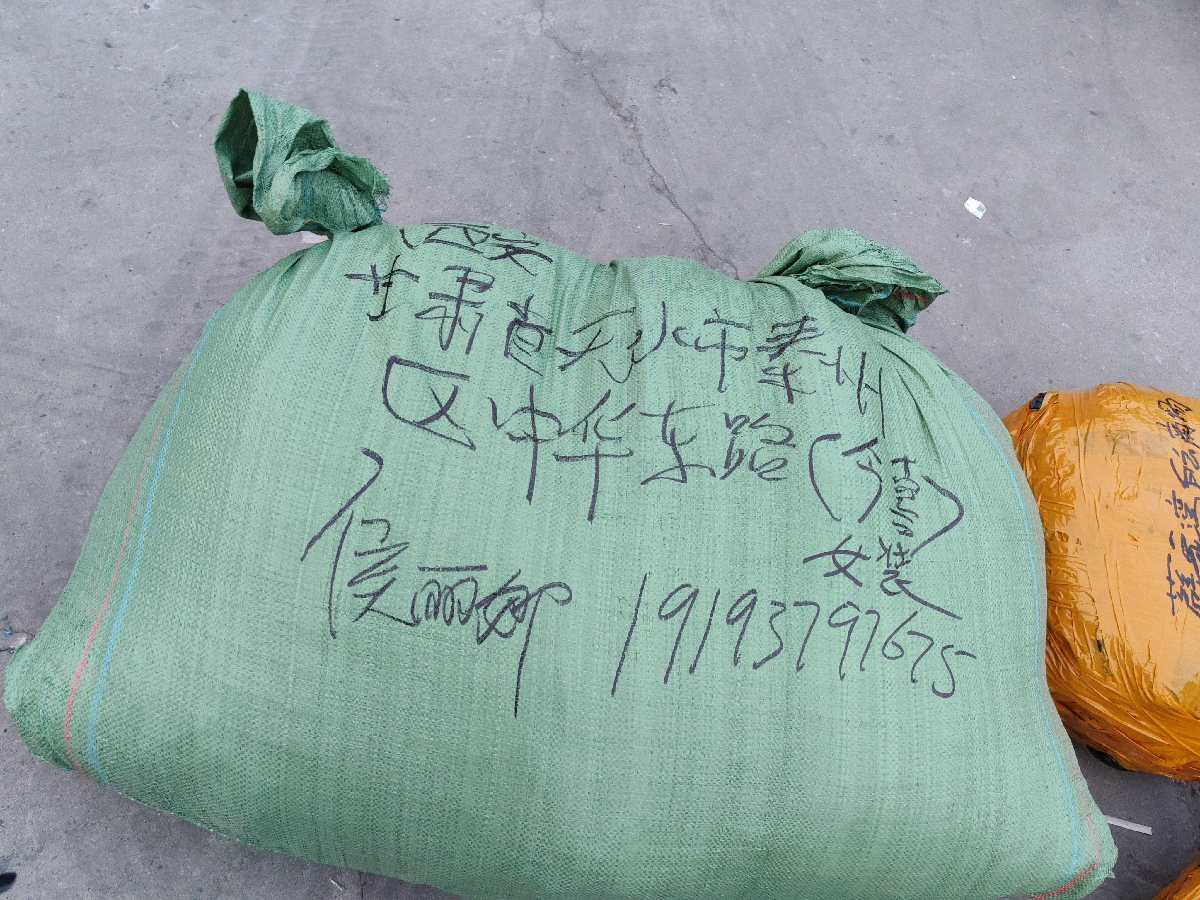 西安
甘肃省天水市秦州
区中华东路(今
女装
侯丽娜 19193797675